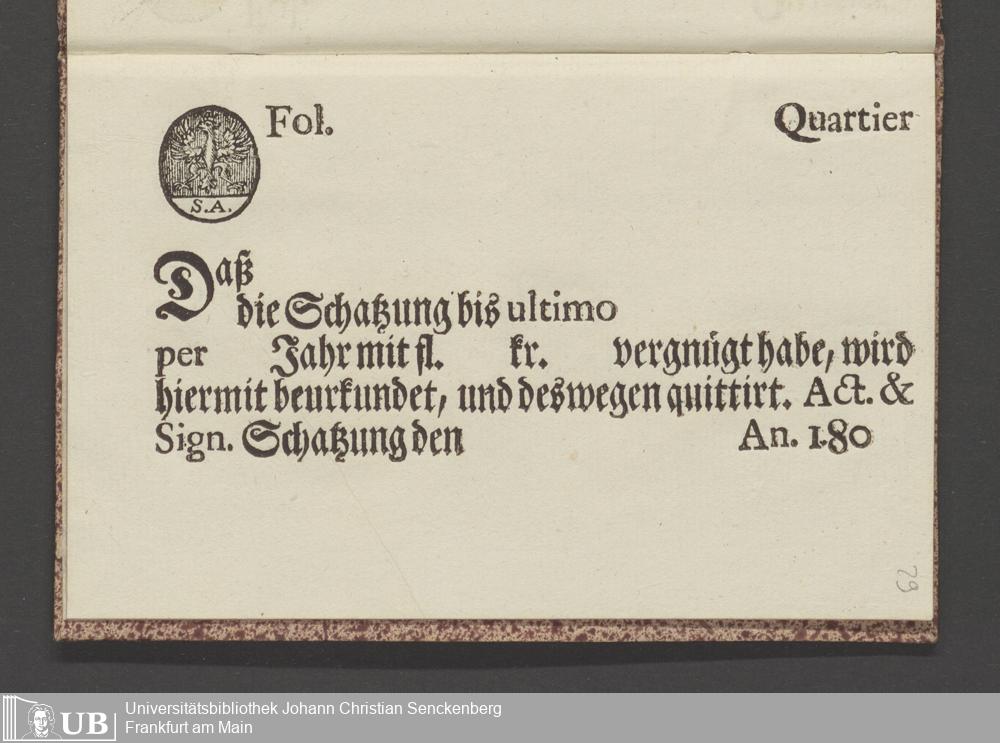 Fol. Quartier
S.A.
Daß
die Schatzung bis ultimo
per Jahr mit fl. kr. vergnügt habe, wird
hiermit beurkundet, und deswegen quittirt. Act. &
Sign. Schatzung den An. 180
29
UB Universitätsbibliothek Johann Christian Senckenberg
Frankfurt am Main